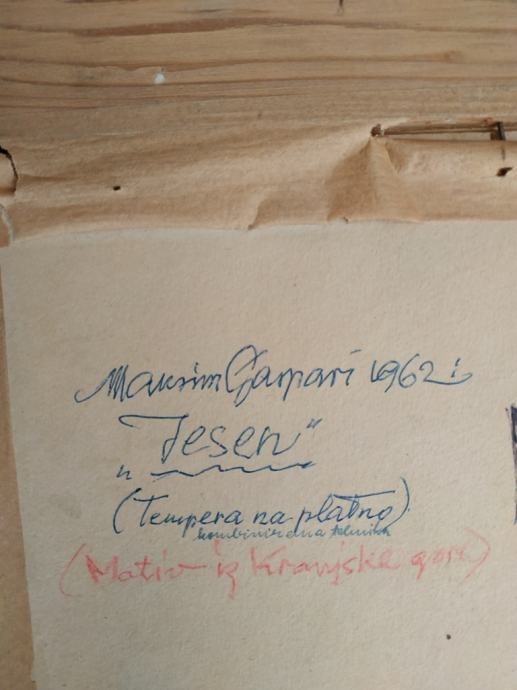 Maksim Gaspari 1962:
„Jesen"
(Tempera na platno)
kombinirana tehnika
(Motiv iz Kranjske gore)